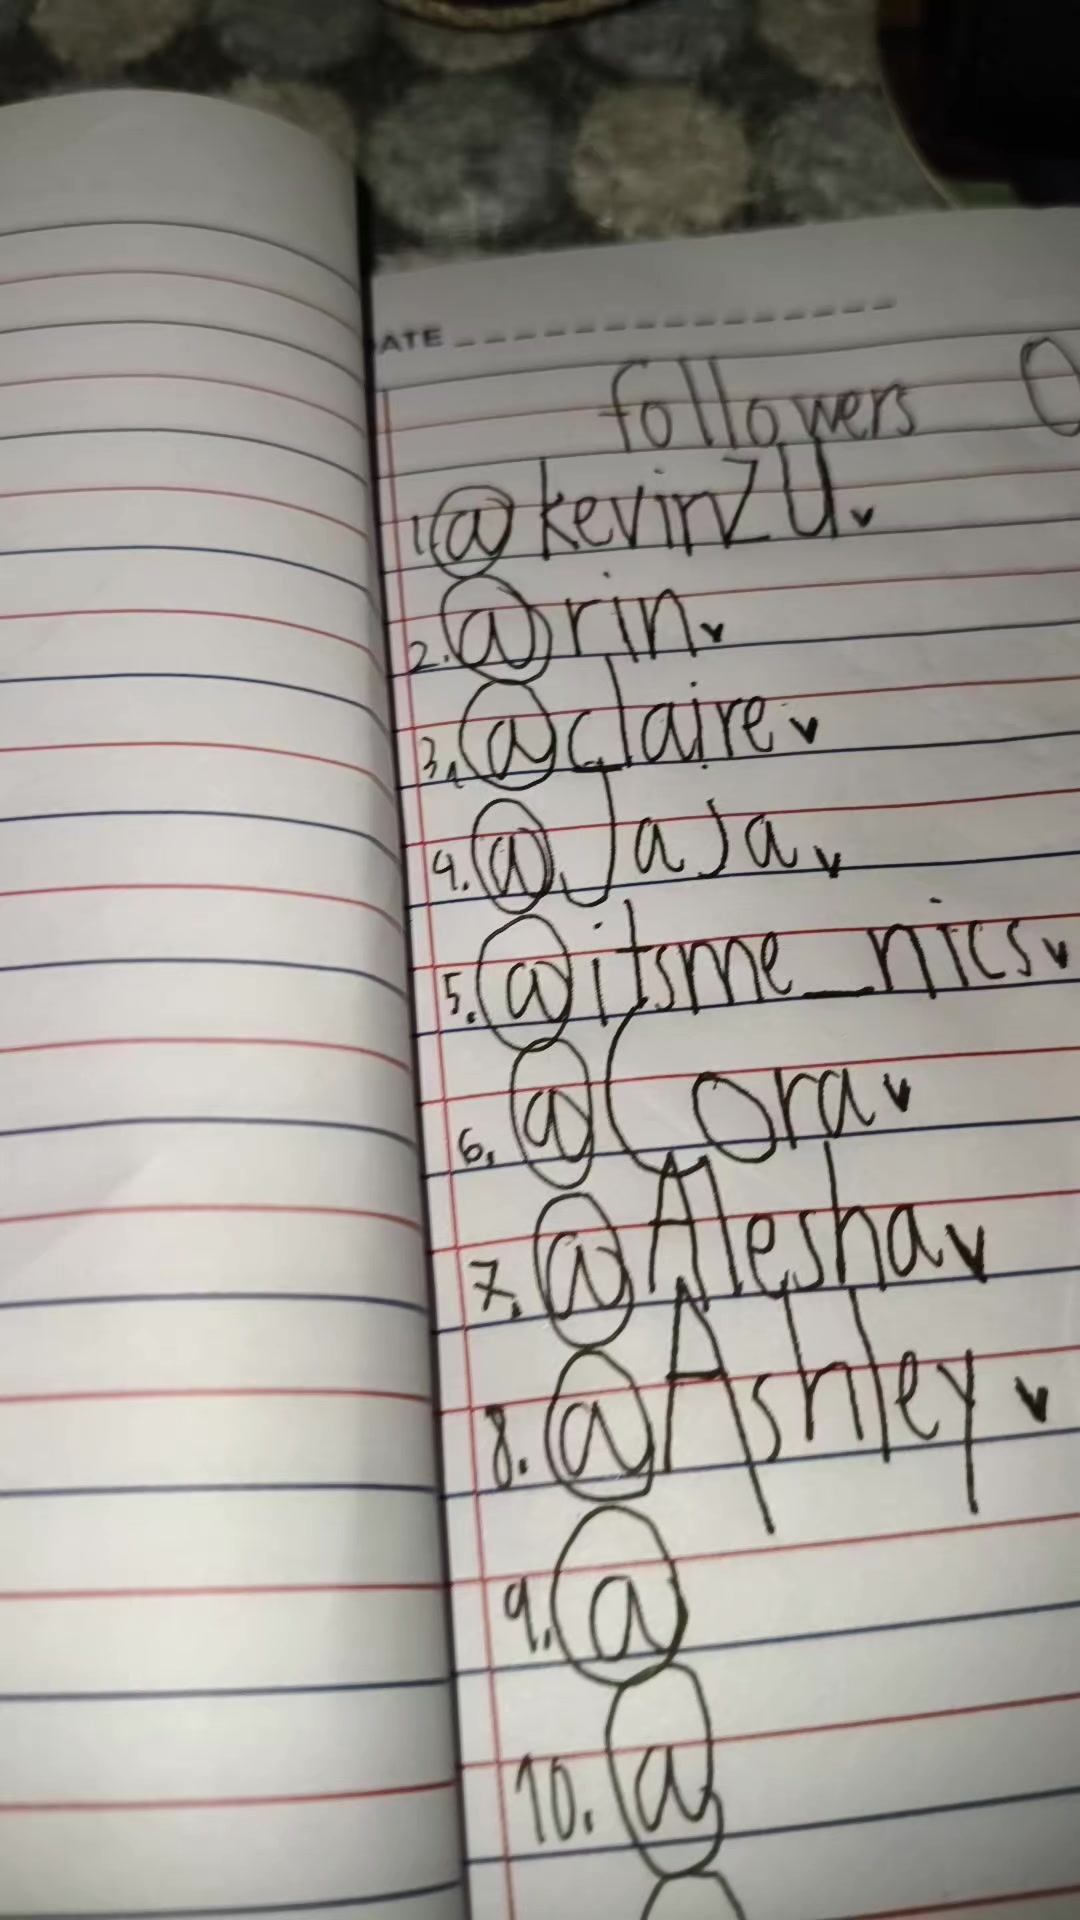 ATE
followers
1. @kevinZU.v
2. @rin.v
3. @clairev
4. @JaJa.v
5. @itsme_nics.v
6. @Corav
7. @Aleshav
8. @Ashley v
9. @
10. @